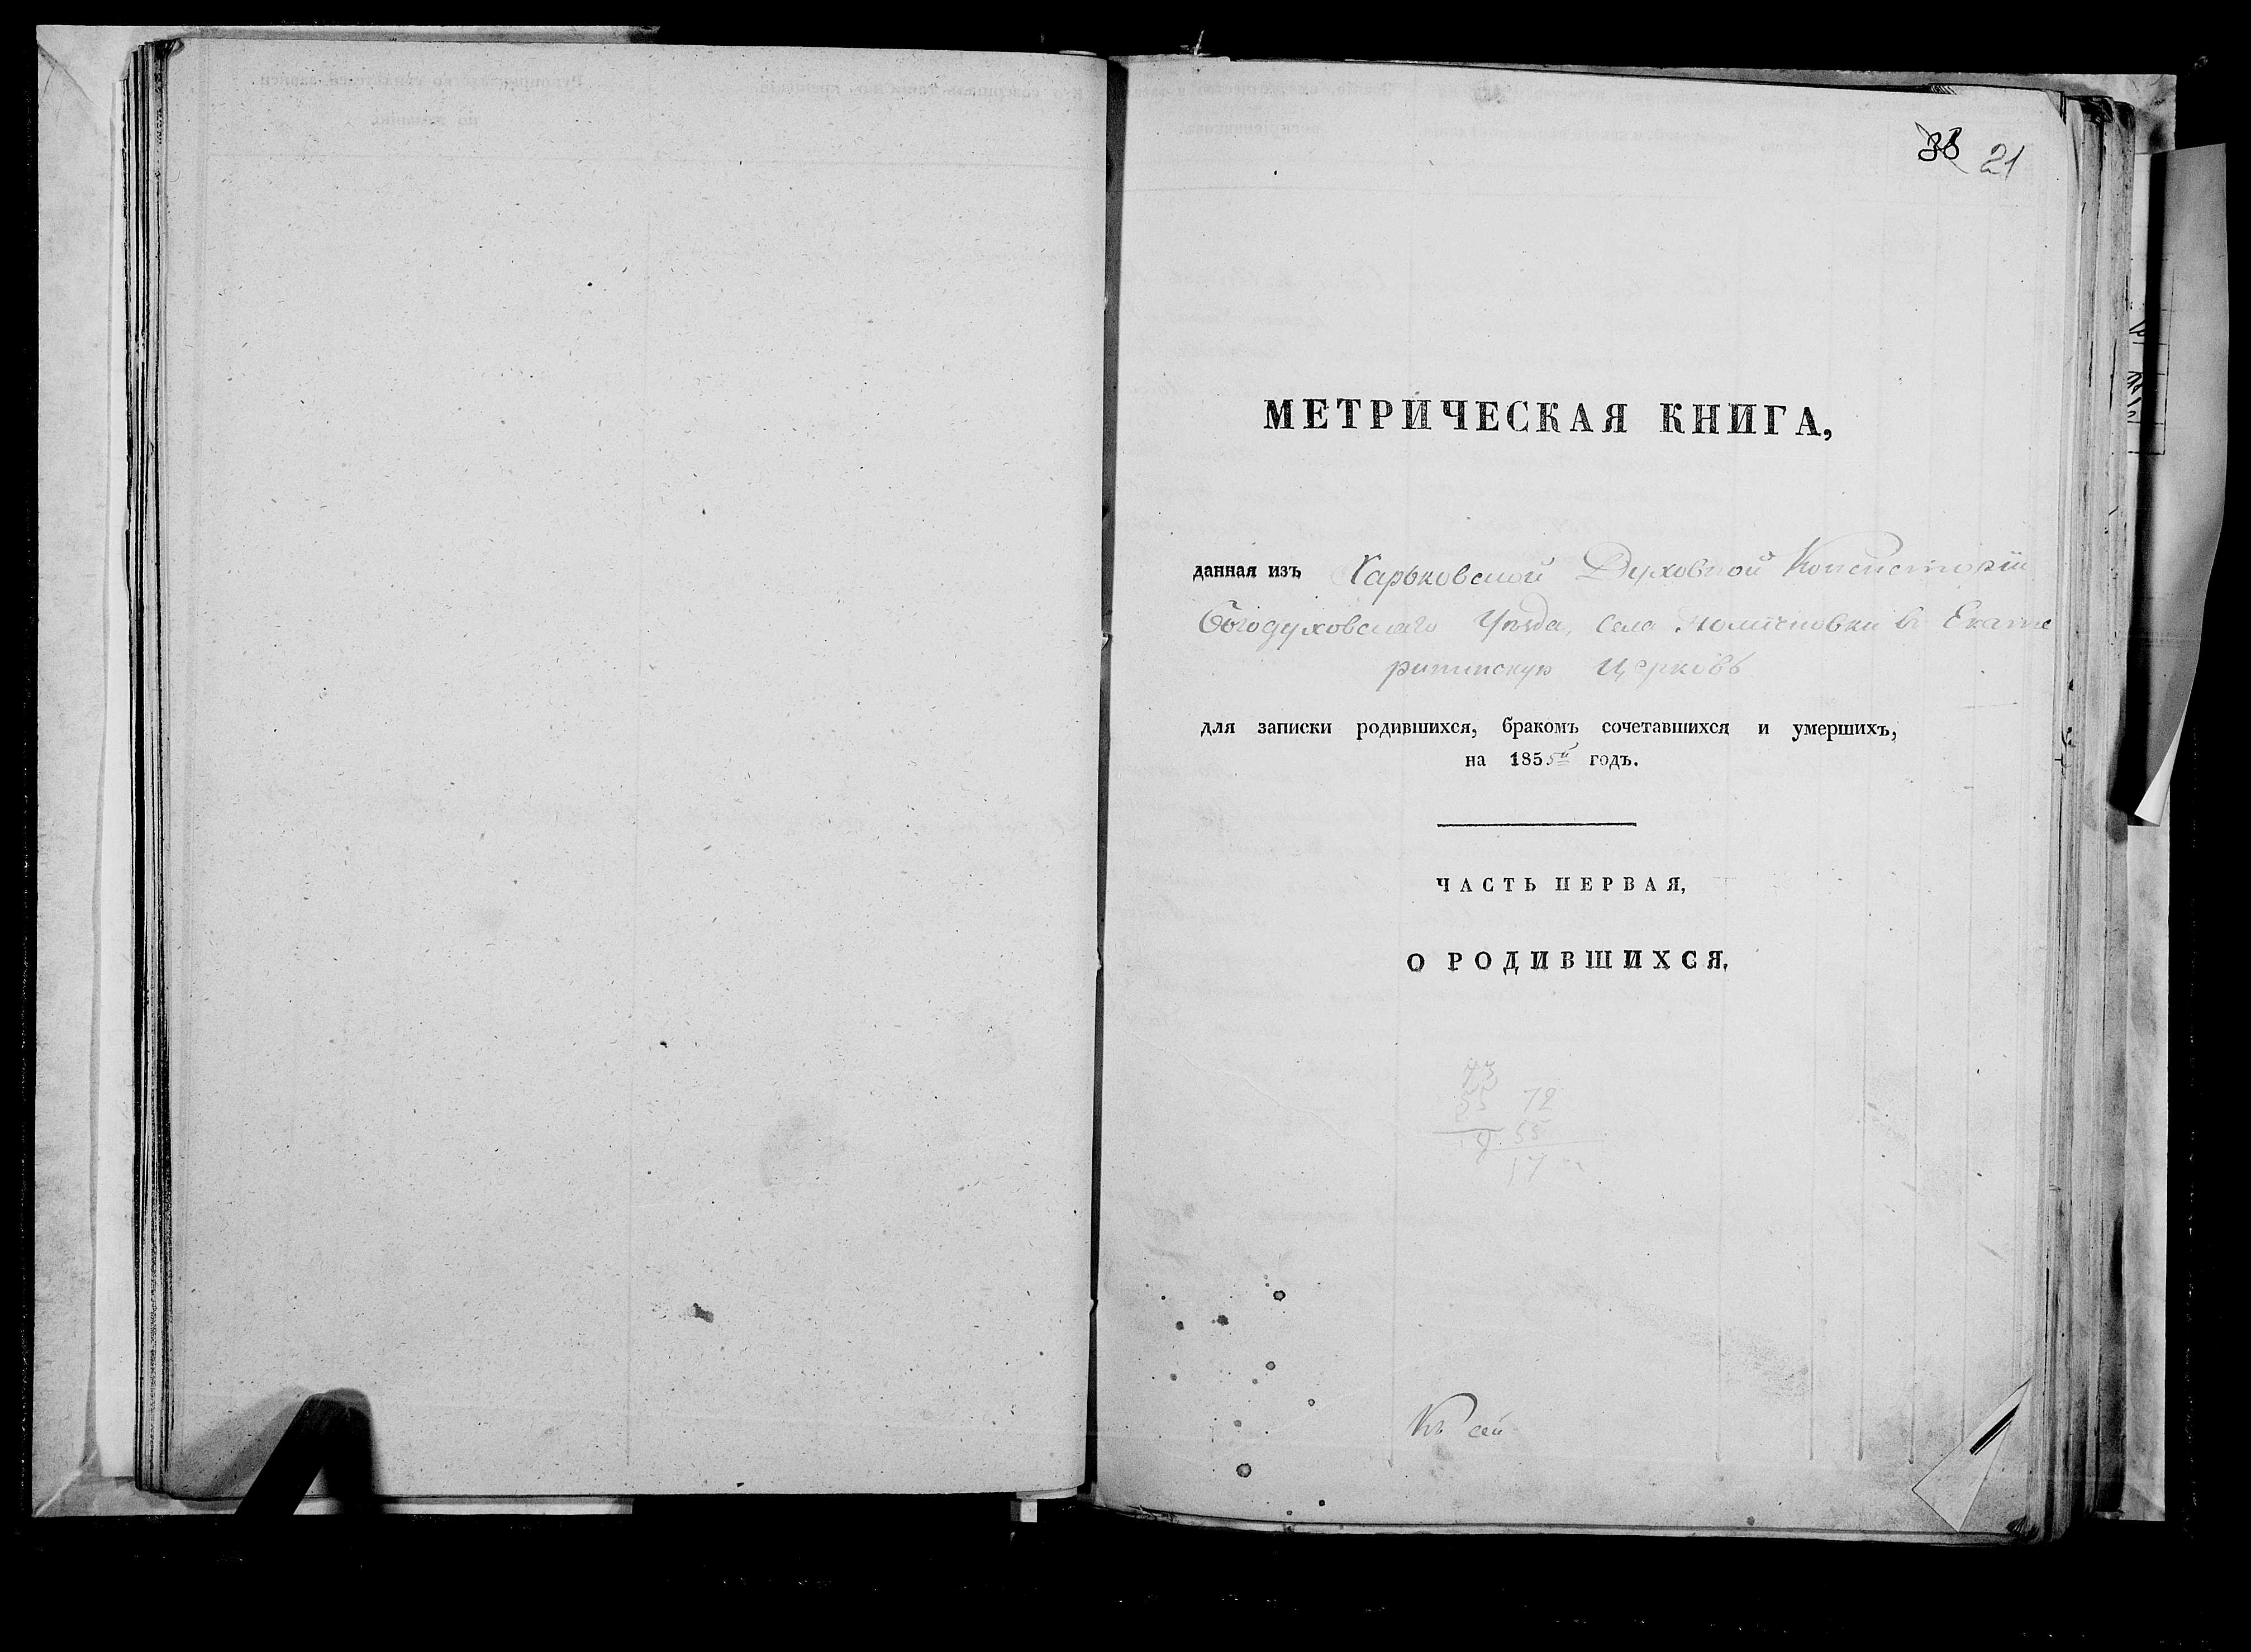 21
МЕТРИЧЕСКАЯ КНИГА,
данная изъ Харьковской Духовной Консисторіи
Богодуховскаго Уѣзда, села въ Екате
рининскую Церковь
для записки родившихся, бракомъ сочетавшихся и умершихъ,
на 1855й годъ.
ЧАСТЬ ПЕРВАЯ,
О РОДИВШИХСЯ.
73
55 72
18 55
17
Къ сей